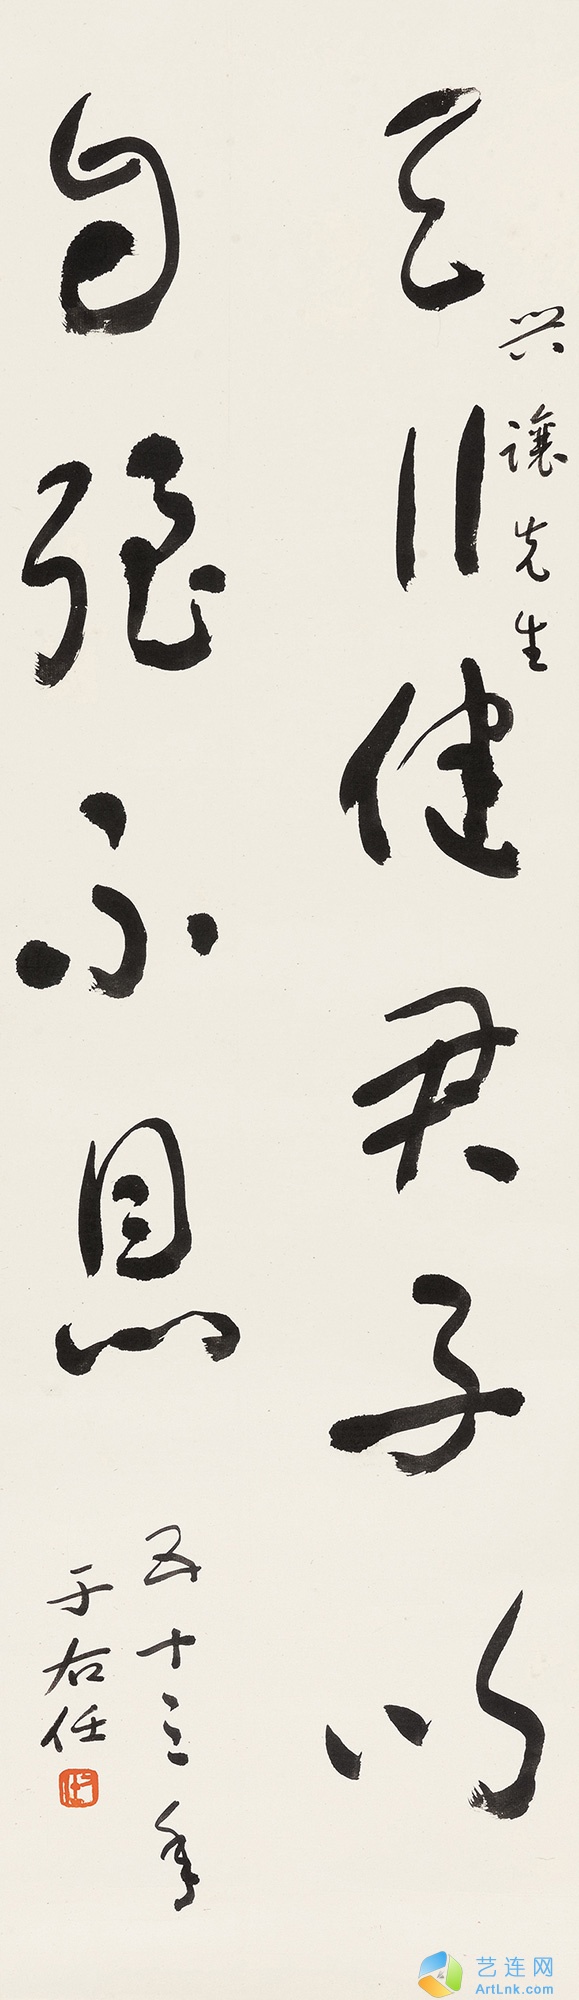 天行健君子以
兴讓先生
自强不息
五十三年
于右任
艺连网
ArtLnk.com